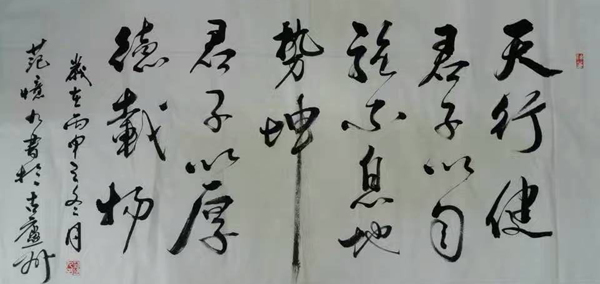 天行健
君子以自
强不息地
势坤
君子以厚
德载物
岁在丙申之冬月
范忆水书于古庐州